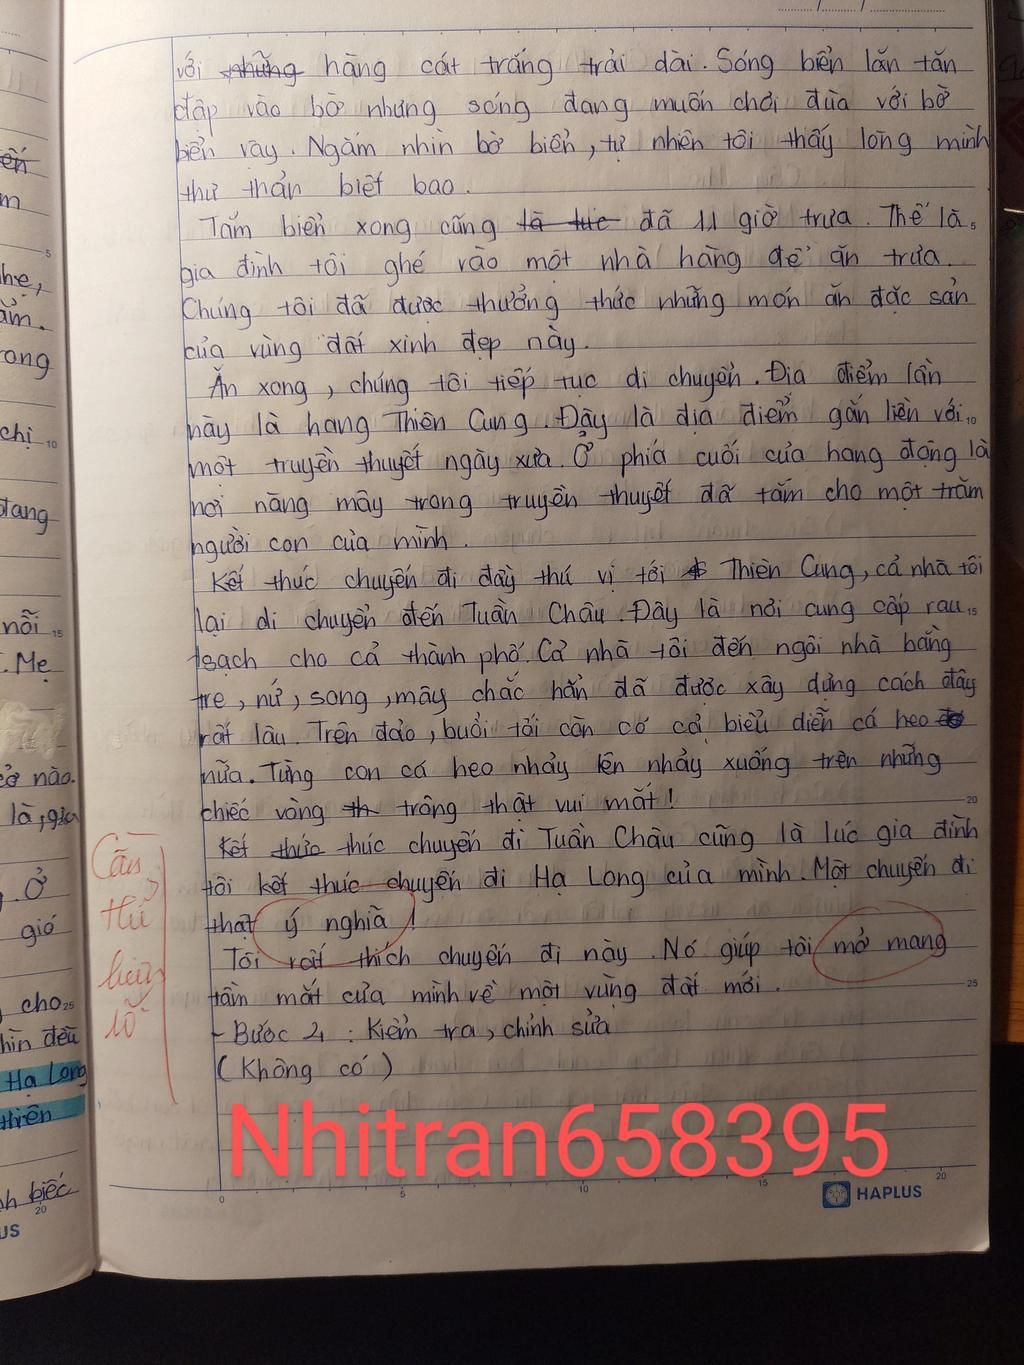 với những hàng cát trắng trải dài. Sóng biển lăn tăn
đập vào bờ nhưng sóng đang muốn chơi đùa với bờ
biển vậy. Ngắm nhìn bờ biển, tự nhiên tôi thấy lòng mình
thư thản biết bao.
Tắm biển xong cũng là lúc đã 11 giờ trưa. Thế là
gia đình tôi ghé vào một nhà hàng để ăn trưa.
Chúng tôi đã được thưởng thức những món ăn đặc sản
của vùng đất xinh đẹp này.
Ăn xong, chúng tôi tiếp tục di chuyển. Địa điểm lần
này là hang Thiên Cung. Đây là địa điểm gắn liền với
một truyền thuyết ngày xưa. Ở phía cuối của hang động là
nơi nàng mây trong truyền thuyết đã tắm cho một trăm
người con của mình.
Kết thúc chuyến đi đầy thú vị tới Thiên Cung, cả nhà tôi
lại di chuyển đến Tuần Châu. Đây là nơi cung cấp rau
sạch cho cả thành phố. Cả nhà tôi đến ngôi nhà bằng
tre, nứ, song, mây chắc hẳn đã được xây dựng cách đây
rất lâu. Trên đảo, buổi tối còn có cả biểu diễn cá heo
nữa. Từng con cá heo nhảy lên nhảy xuống trên những
chiếc vòng th trông thật vui mắt!
Kết thúc thúc chuyến đi Tuần Châu cũng là lúc gia đình
tôi kết thúc chuyến đi Hạ Long của mình. Một chuyến đi
thật ý nghĩa!
Tôi rất thích chuyến đi này. Nó giúp tôi mở mang
tầm mắt của mình về một vùng đất mới.
- Bước 4: Kiểm tra, chỉnh sửa
(Không có)
Nhitran658395
HAPLUS
0 5 10 15 20
5
10
15
20
25
Cần
lỗ
ến
m
5
nhẹ,
ẩm.
rong
chị 10
đang
nỗi 15
. Mẹ
cở nào.
là, giữa
. Ở
gió
cho 25
hìn đều
Hạ Long
thiên
nh biếc
20
US